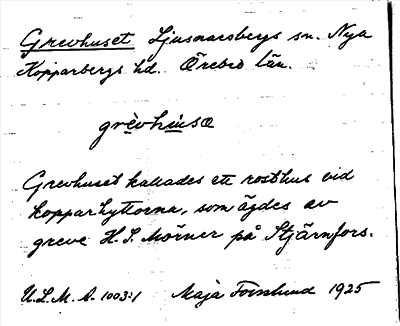 Grevhuset Ljusnarsbergs sn. Nya
Kopparbergs hd. Örebro län.
grèvhúsa
Grevhuset kallades ett rosthus vid
kopparhyttorna, som ägdes av
greve H. S. Mörner på Stjärnfors.
U.L.M.A. 1003:1 Maja Forsslund 1925